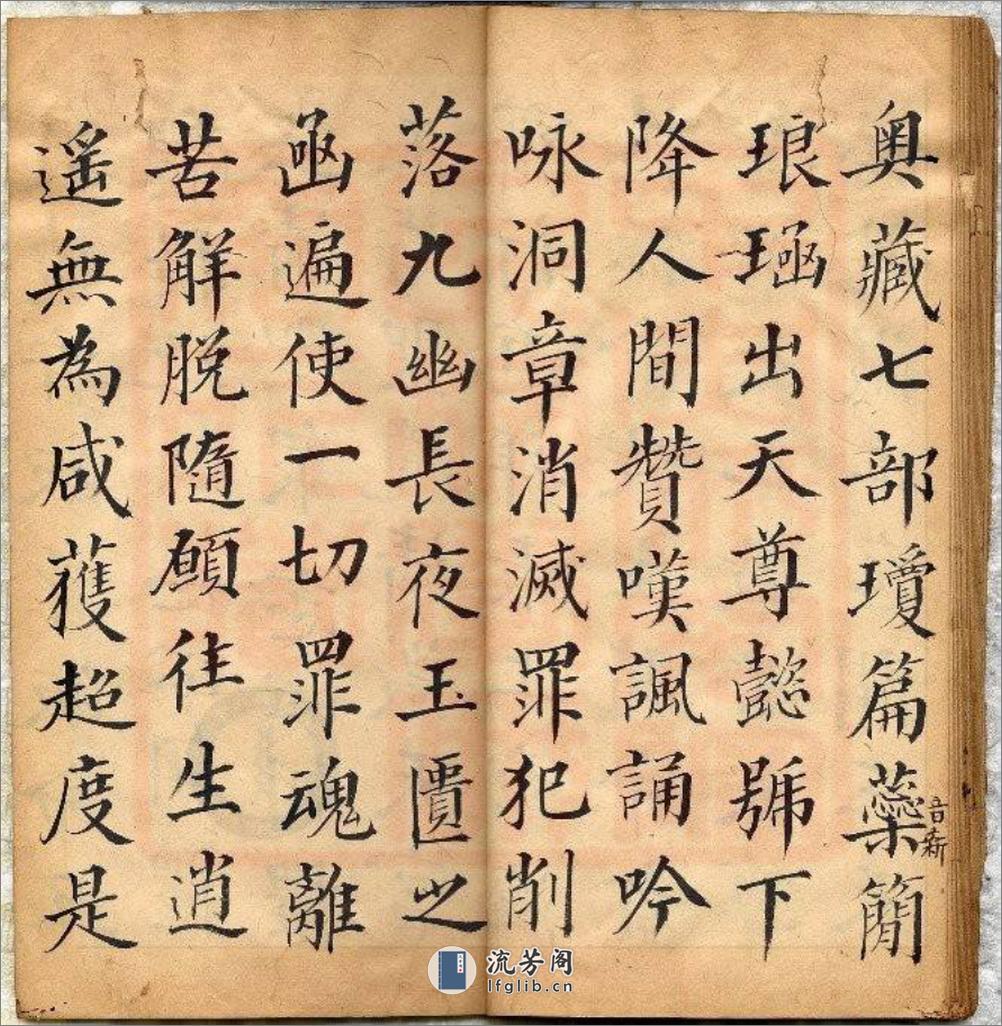 奥藏七部瓊篇蘂簡
音新
琅㻍出天尊懿號下
降人間贊嘆諷誦吟
咏洞章消滅罪犯削
落九幽長夜玉匱之
凾遍使一切罪魂離
苦解脱隨願往生逍
遥無為咸獲超度是
流芳阁
lfglib.cn